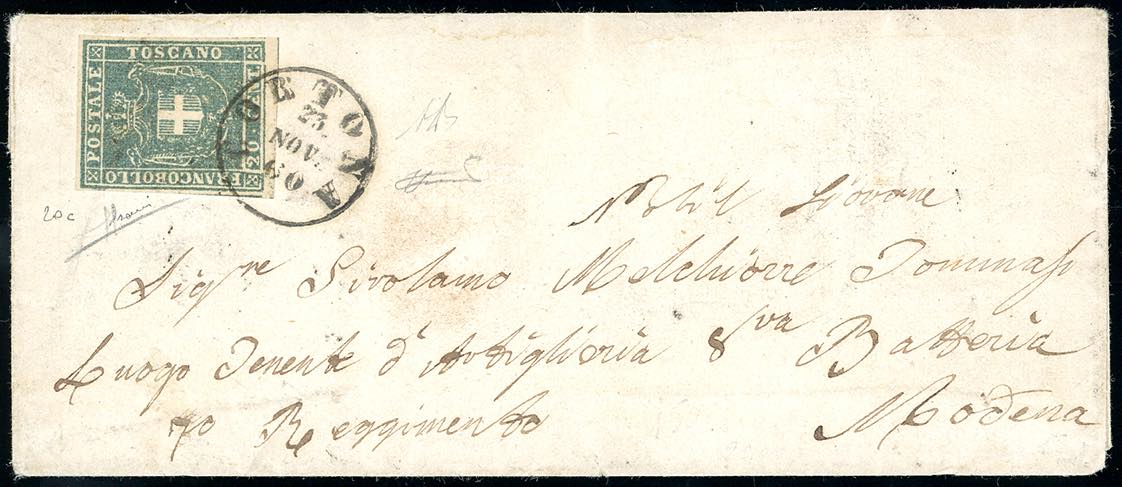 FRANCOBOLLO
POSTALE
TOSCANO
20 CENT
CORTONA
23.
NOV.
60
20 c
Nobil Giovane
Sigre Girolamo Melchiorre Tommasi
Luogo Tenente d'Artiglieria 8va Batteria
7o Reggimento Modena